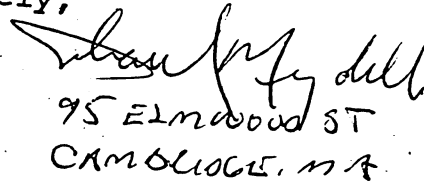 ely,
95 ELMWOOD ST
CAMBRIDGE, MA